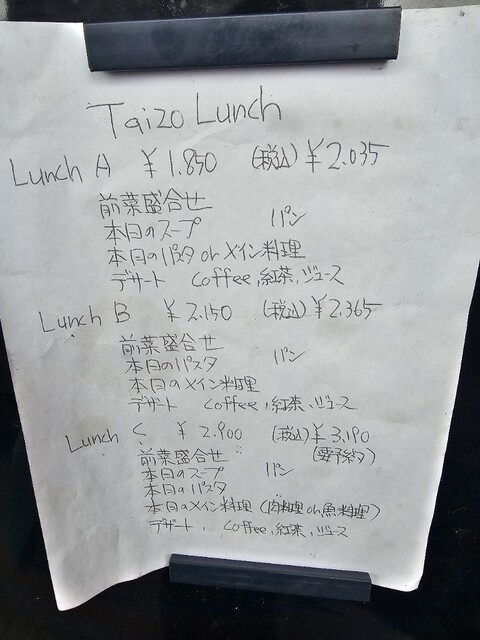 Taizo Lunch
Lunch A ¥1.850 (税込) ¥2.035
前菜盛合せ
本日のスープ パン
本日のパスタ or メイン料理
デザート coffee,紅茶,ジュース
Lunch B ¥2.150 (税込) ¥2.365
前菜盛合せ
本日のパスタ パン
本日のメイン料理
デザート coffee,紅茶,ジュース
Lunch C ¥2.900 (税込) ¥3.190
前菜盛合せ (要予約)
本日のスープ パン
本日のパスタ
本日のメイン料理 (肉料理 or 魚料理)
デザート、 coffee,紅茶,ジュース